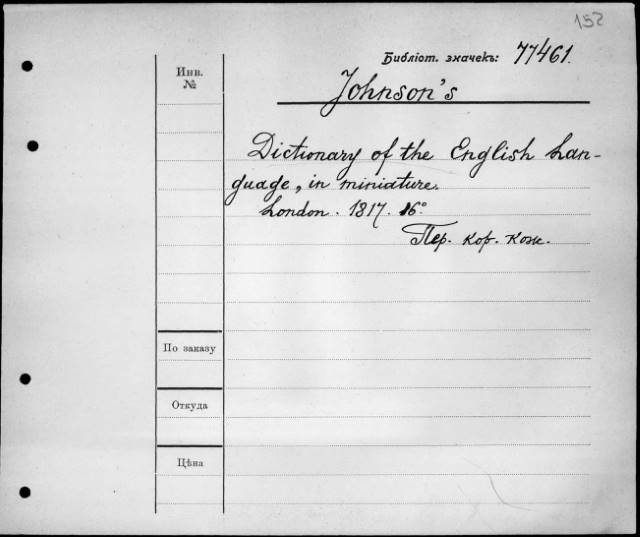 152
Библіот. значекъ: 77461.
Инв.
№
Johnson's
Dictionary of the English Lan-
guage, in miniature.
London. 1817. 16°
Пер. кор. кож.
По заказу
Откуда
Цѣна